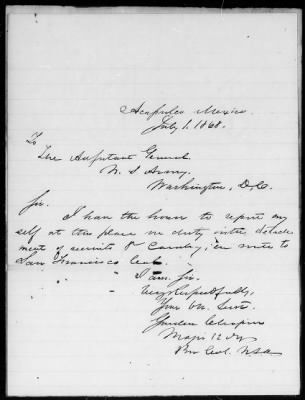 Acapulco Mexico
July 1, 1868.
To
The Adjutant General
U. S. Army.
Washington, D.C.
Sir.
I have the honor to report my
self at this place on duty with detach
ment of recruits 8" Cavalry, en route to
San Francisco Cal.
I am Sir.
Very Respectfully,
Your Ob. Servt.
Gurden Chapin
Major 12 Inf
Bvt Col. USA